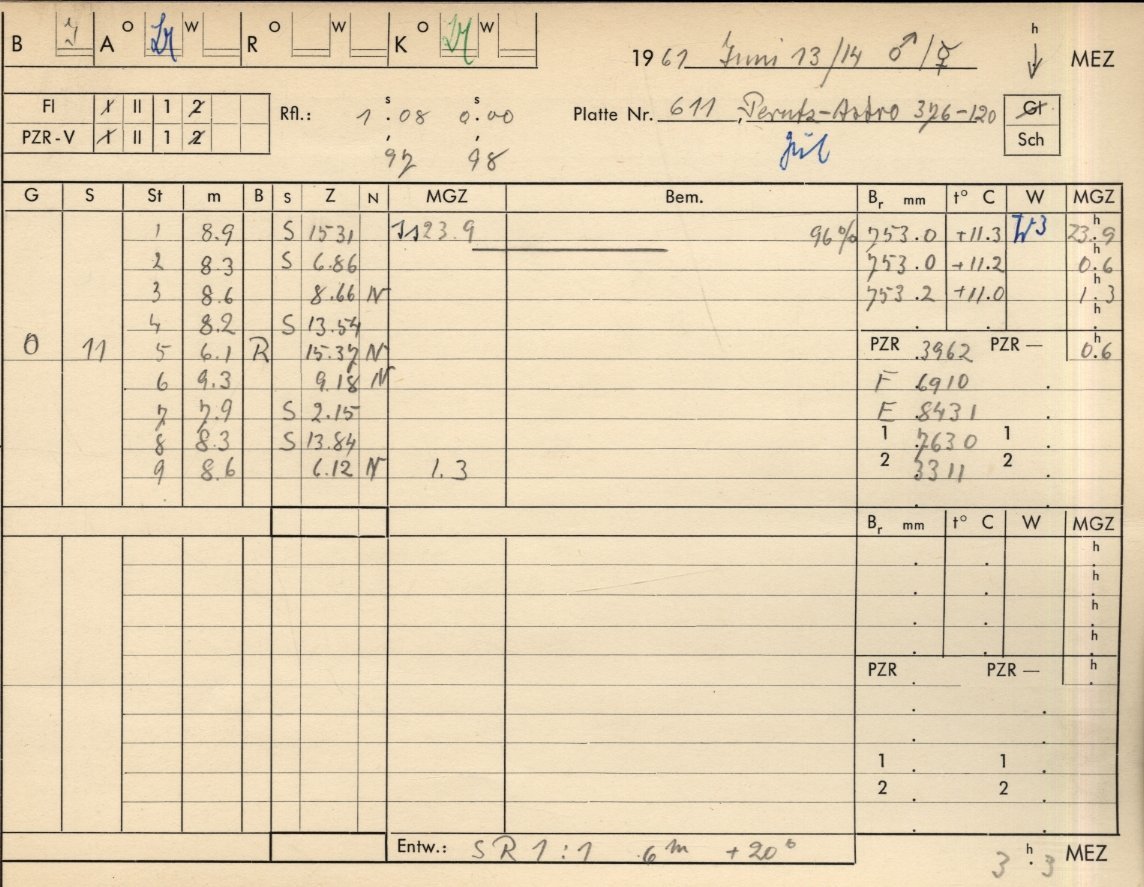 B A O W R O W K O W
1961 Juni 13/14 ♂/☿ h MEZ
Fl I II 1 2
PZR-V I II 1 2
Rfl.: 1 s. 08 0 s. 00
, 97 , 98
Platte Nr. 611, Perutz-Astro 376-120
Gl
Sch
G S St m B S Z N MGZ Bem. Br mm t° C W MGZ
1 8.9 S 15 31 23.9 96% 753.0 +11.3 W3 23 h. 9
2 8.3 S 6.86 753.0 +11.2 0 h. 6
3 8.6 8.66 N 753.2 +11.0 1 h. 3
4 8.2 S 13.54 . . h.
0 11 5 6.1 R 15.37 N PZR .3962 PZR — 0 h. 6
6 9.3 9.18 N F .6910 .
7 7.9 S 2.15 E .8431 .
8 8.3 S 13.84 1 .7630 1 .
9 8.6 6.12 N 1.3 2 .3311 2 .
Br mm t° C W MGZ
. . h.
. . h.
. . h.
. . h.
PZR . PZR — h.
. .
. .
1 . 1 .
2 . 2 .
Entw.: SR 1:1 6 m +20°
3 h. 3 MEZ